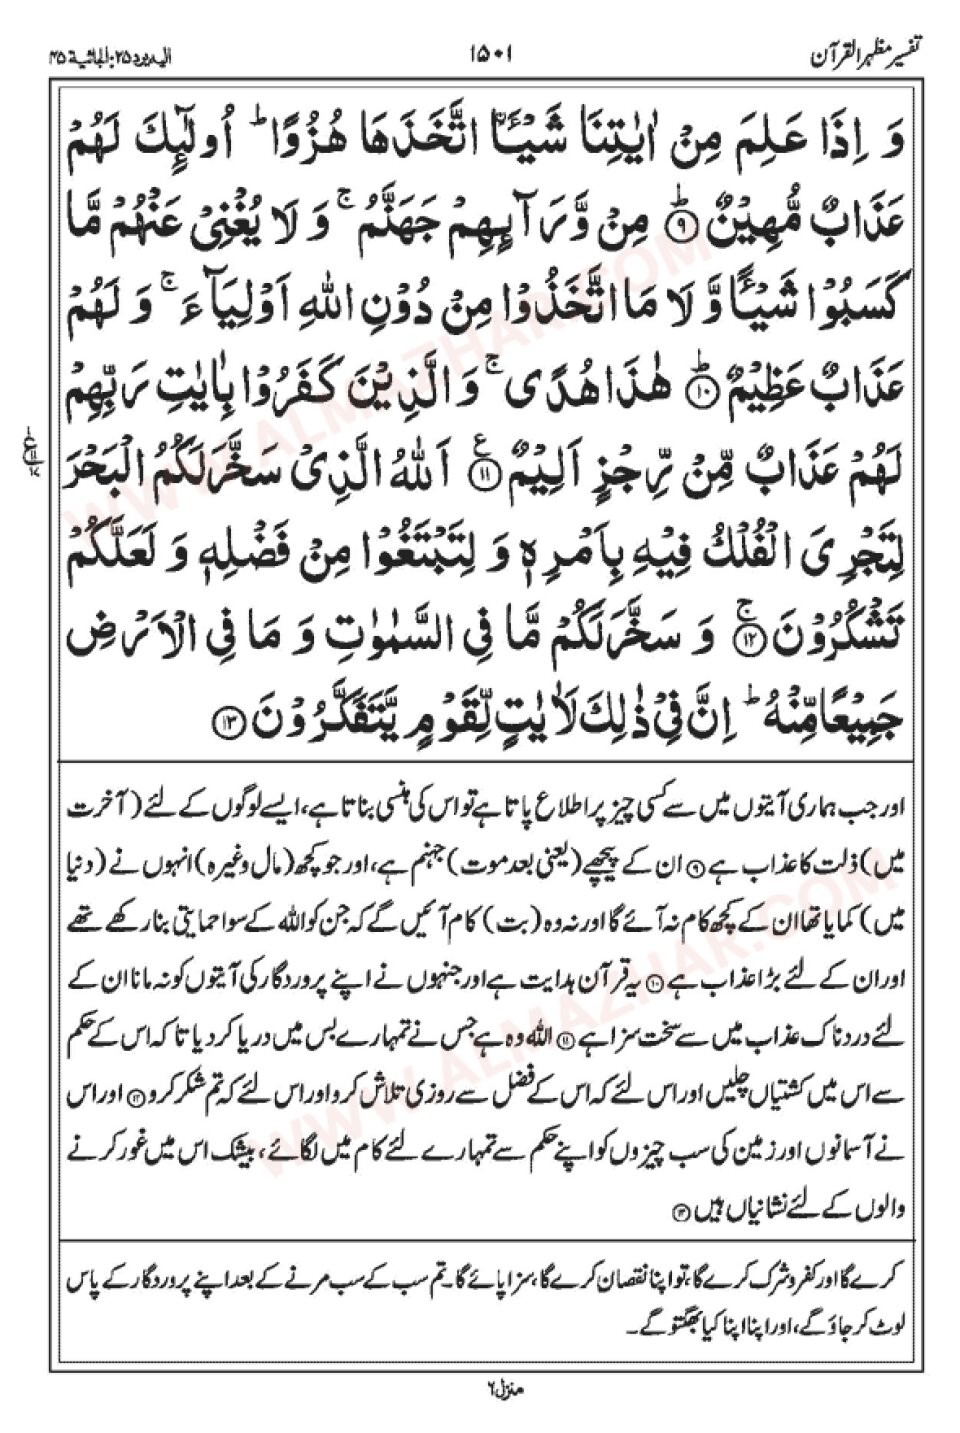 تفسیر مظہر القرآن
۱۵۰۱
الیہ یرد ۲۵: الجاثیۃ ۴۵
وَ اِذَا عَلِمَ مِنْ اٰیٰتِنَا شَیْـَٔاۨ اتَّخَذَهَا هُزُوًا ؕ اُولٰٓئِكَ لَهُمْ
عَذَابٌ مُّهِیْنٌ ؕ﴿۹﴾ مِنْ وَّرَآىِٕهِمْ جَهَنَّمُ ۚ وَ لَا یُغْنِیْ عَنْهُمْ مَّا
كَسَبُوْا شَیْـًٔا وَّ لَا مَا اتَّخَذُوْا مِنْ دُوْنِ اللهِ اَوْلِیَآءَ ۚ وَ لَهُمْ
عَذَابٌ عَظِیْمٌ ؕ﴿۱۰﴾ هٰذَا هُدًی ۚ وَ الَّذِیْنَ كَفَرُوْا بِاٰیٰتِ رَبِّهِمْ
لَهُمْ عَذَابٌ مِّنْ رِّجْزٍ اَلِیْمٌ ﴿۱۱﴾ع اَللهُ الَّذِیْ سَخَّرَ لَكُمُ الْبَحْرَ
لِتَجْرِیَ الْفُلْكُ فِیْهِ بِاَمْرِهٖ وَ لِتَبْتَغُوْا مِنْ فَضْلِهٖ وَ لَعَلَّكُمْ
تَشْكُرُوْنَ ۚ﴿۱۲﴾ وَ سَخَّرَ لَكُمْ مَّا فِی السَّمٰوٰتِ وَ مَا فِی الْاَرْضِ
جَمِیْعًا مِّنْهُ ؕ اِنَّ فِیْ ذٰلِكَ لَاٰیٰتٍ لِّقَوْمٍ یَّتَفَكَّرُوْنَ ﴿۱۳﴾
اور جب ہماری آیتوں میں سے کسی چیز پر اطلاع پاتا ہے تو اس کی ہنسی بناتا ہے، ایسے لوگوں کے لئے (آخرت
میں) ذلت کا عذاب ہے ﴿۹﴾ ان کے پیچھے (یعنی بعد موت) جہنم ہے، اور جو کچھ (مال وغیرہ) انہوں نے (دنیا
میں) کمایا تھا ان کے کچھ کام نہ آئے گا اور نہ وہ (بت) کام آئیں گے کہ جن کو اللہ کے سوا حمایتی بنا رکھے تھے
اور ان کے لئے بڑا عذاب ہے ﴿۱۰﴾ یہ قرآن ہدایت ہے اور جنہوں نے اپنے پروردگار کی آیتوں کو نہ مانا ان کے
لئے دردناک عذاب میں سے سخت سزا ہے ﴿۱۱﴾ اللہ وہ ہے جس نے تمہارے بس میں دریا کر دیا تاکہ اس کے حکم
سے اس میں کشتیاں چلیں اور اس لئے کہ اس کے فضل سے روزی تلاش کرو اور اس لئے کہ تم شکر کرو ﴿۱۲﴾ اور اس
نے آسمانوں اور زمین کی سب چیزوں کو اپنے حکم سے تمہارے لئے کام میں لگائے، بیشک اس میں غور کرنے
والوں کے لئے نشانیاں ہیں ﴿۱۳﴾
کرے گا اور کفر و شرک کرے گا، تو اپنا نقصان کرے گا، سزا پائے گا۔ تم سب کے سب مرنے کے بعد اپنے پروردگار کے پاس
لوٹ کر جاؤ گے، اور اپنا اپنا کیا بھگتو گے۔
منزل ۶
WWW.ALMAZHAR.COM
WWW.ALMAZHAR.COM